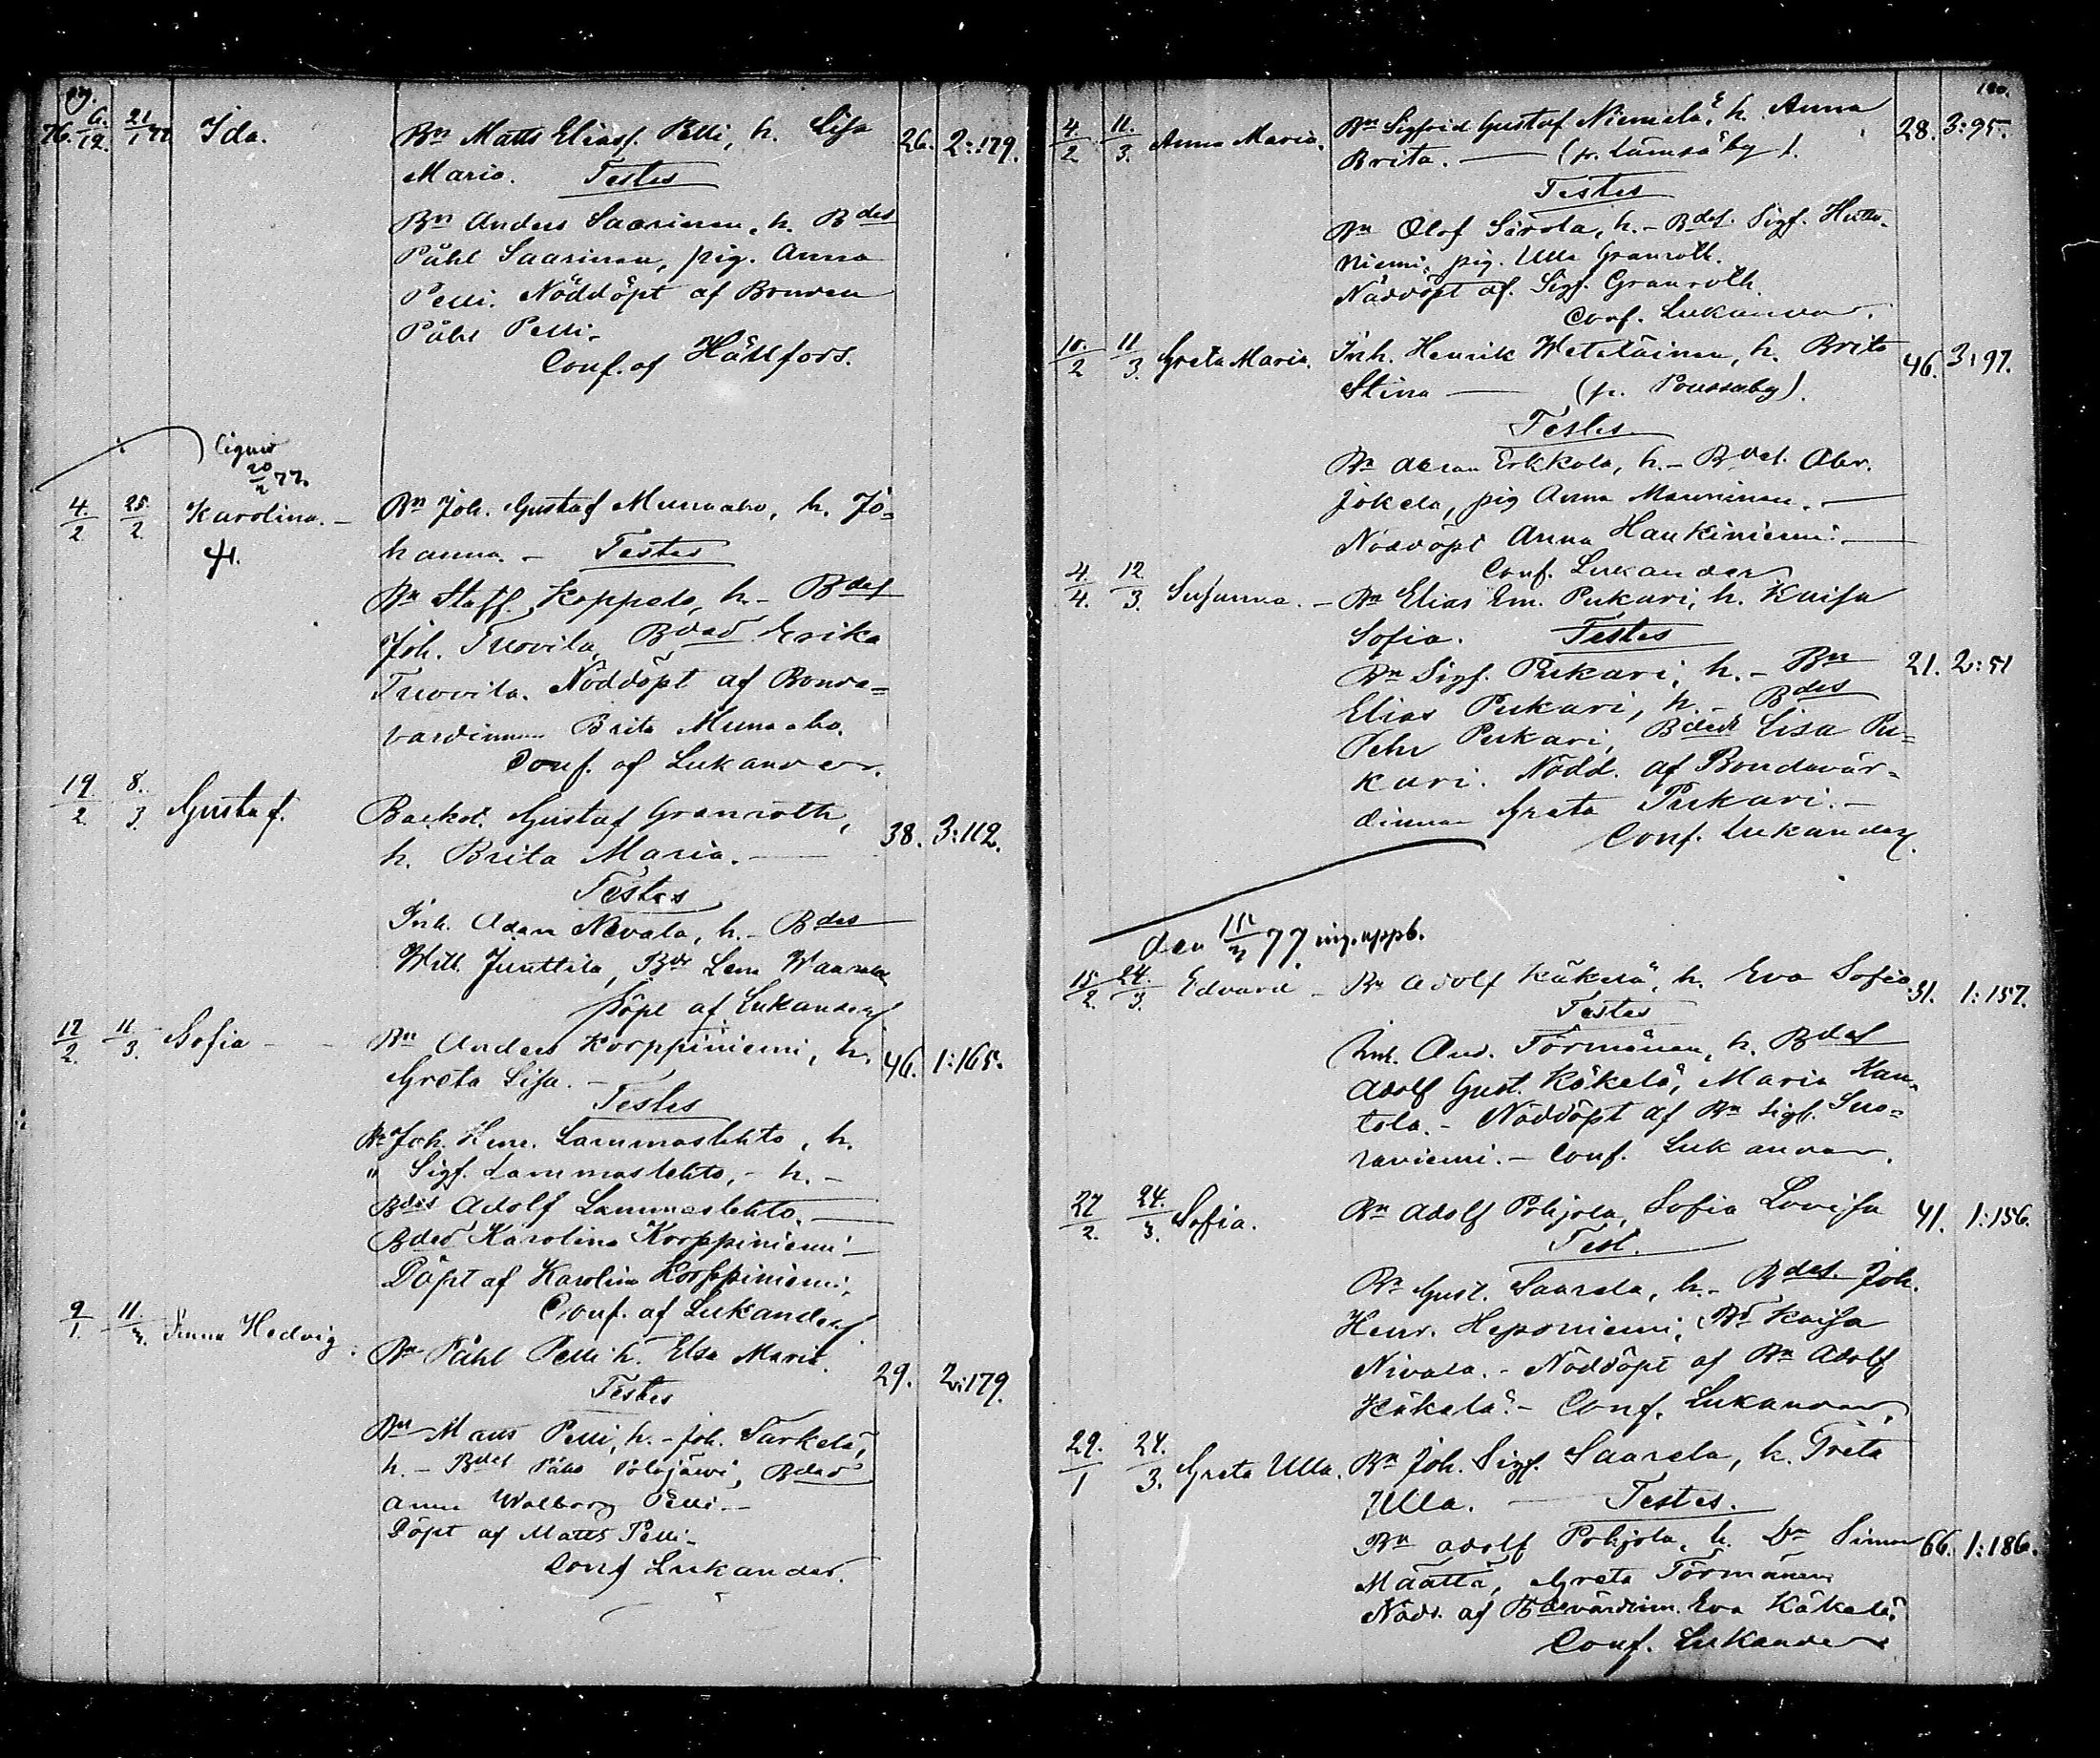 99.
76. 6/12. 21/1 77 Ida. Bn Matts Eliasf. Pelli, h. Lisa 26. 2:179.
Maria. Testes
Bn Anders Saarinen, h. Bdes
Påhl Saarinen, pig. Anna
Pelli. Nöddöpt af Bonden
Påhl Pelli.
Conf. af Hällfors.
20/2 77.
4/2 25/2 Karolina. - Bn Joh. Gustaf Munaaho, h. Jo=
hanna. - Testes
Bn Staff. Koppelo, h. - Bdes
Joh. Tuovila, Bded Erika
Tuovila. Nöddöpt af Bonde=
värdinnan Brita Munaaho.
Conf. af Lukander.
19/2 8/3 Gustaf. Backst. Gustaf Granroth, 38. 3:112.
h. Brita Maria.
Testes
Inh. Adam Nevala, h. - Bdes
Will. Junttila, Lena Waarala
Döpt af Lukander
17/2 11/3 Sofia - Bn Anders Korppiniemi, h. 46. 1:165.
Greta Lisa. -
Testes
Bn Joh. Henr. Lammaslehto, h.
" Sigf. Lammaslehto, - h. -
Bdes Adolf Lammaslehto.
Bded Karolina Korppiniemi
Döpt af Karolina Korppiniemi.
Conf. af Lukander
9/1 11/3. Anna Hedvig. Bn Påhl Pelli h. Elsa Maria. 29. 2:179.
Testes
Bn Matts Pelli, h. - Joh. Särkelä,
h. - Bdes Påhl Polojärvi, Bded
Anna Walborg Pelli. -
Döpt af Matts Pelli.
Conf Lukander.
100.
4/2 11/3. Anna Maria. Bn Sigfrid Gustaf Niemelä, h. Anna 28. 3:95.
Brita. - (fr. Lämsä by).
Testes
Bn Olof Sirola, h. - Bdes. Sigf. Huttu-
niemi, pig. Ulla Granroth.
Nöddöpt af. Sigf. Granroth.
Conf. Lukander.
10/2 11/3. Greta Maria. Inh. Henrik Weteläinen, h. Brita 46. 3:97.
Stina - (fr. Poussuby).
Testes
Bn Adam Erkkola, h. - Bdes. Abr.
Jokela, pig Anna Manninen. -
Nöddöpt Anna Haukiniemi. -
Conf. Lukander
4/4. 12/3. Susanna. - Bn Elias Em. Pukari, h. Kaisa 21. 2:51
Sofia. Testes
Bn Sigf. Pukari, h. - Bn
Elias Pukari, h. - Bdes
Pehr Pukari, Bded Lisa Pu=
kari. Nödd. af Bondevär=
dinnan Greta Pukari. -
Conf. Lukander.
den 15/3 77.
15/2. 24/3. Edvard - Bn Adolf Käkelä, h. Eva Sofia 31. 1:157.
Testes
Inh. And. Törmänen, h. Bdes
Adolf Gust. Käkelä, Maria Kan=
tola. - Nöddöpt af Bn Sigf. Suo=
raniemi. - Conf. Lukander.
27/2. 24/3. Sofia. Bn Adolf Pohjola, Sofia Lovisa 41. 1:156.
Test.
Bn Gust. Saarela, h. - Bdes. Joh.
Henr. Heponiemi, Bd Kaisa
Nivala. - Nöddöpt af Bn Adolf
Käkelä. - Conf. Lukander.
29/1 24/3. Greta Ulla. Bn Joh. Sigf. Saarela, h. Greta 66. 1:186.
Ulla. - Testes.
Bn Adolf Pohjola, h. Dn Simon
Määttä, Greta Törmänen
Nödd. af Bdevärdinn. Eva Käkelä.
Conf. Lukander